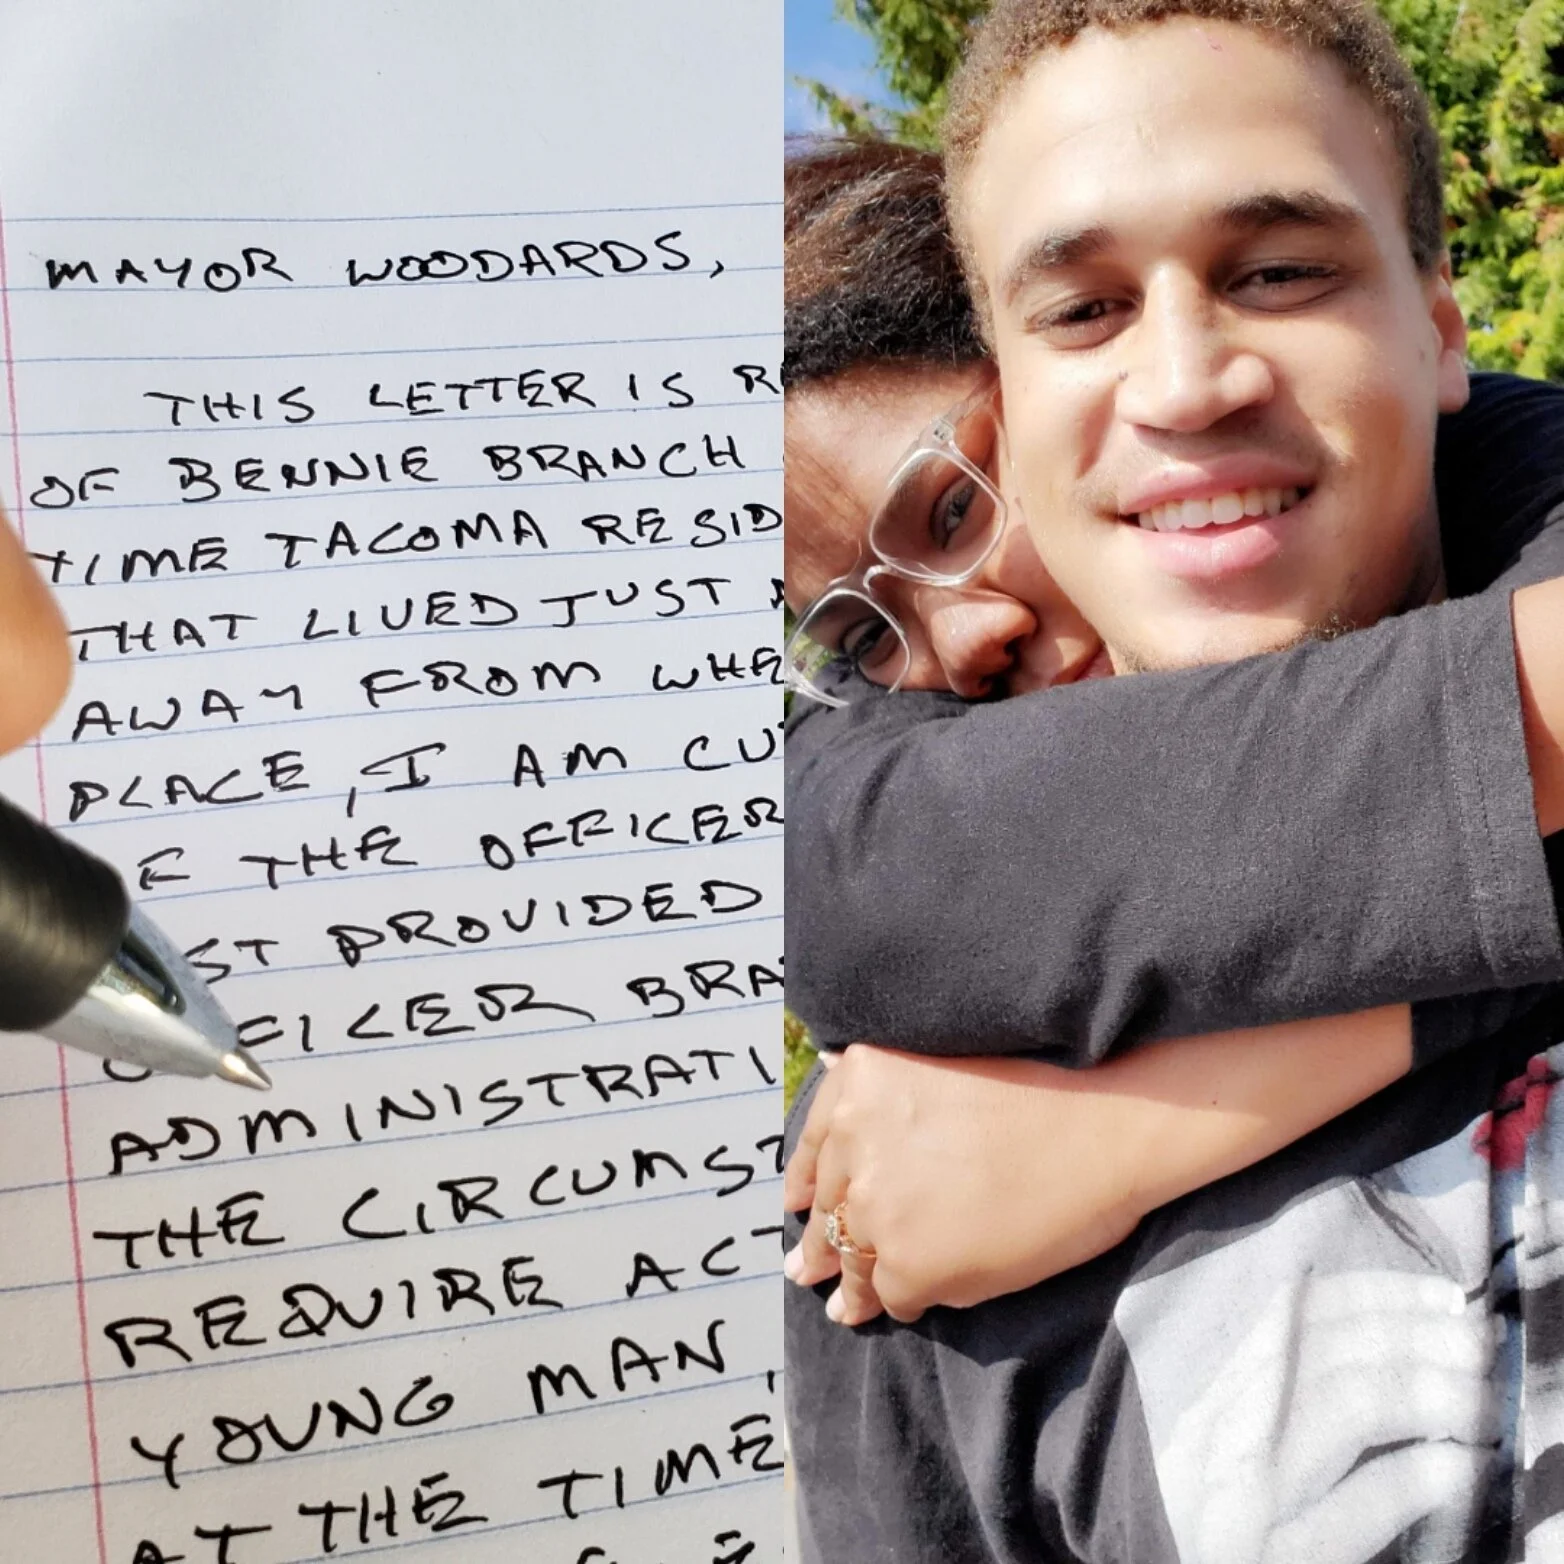 MAYOR WOODARDS,
THIS LETTER IS
OF BENNIE BRANCH
TIME TACOMA RESID
THAT LIVED JUST
AWAY FROM WHE
PLACE, I AM CU
THE OFFICER
ST PROVIDED
FICER BRA
ADMINISTRATI
THE CIRCUMST
REQUIRE ACT
YOUNG MAN,
AT THE TIME